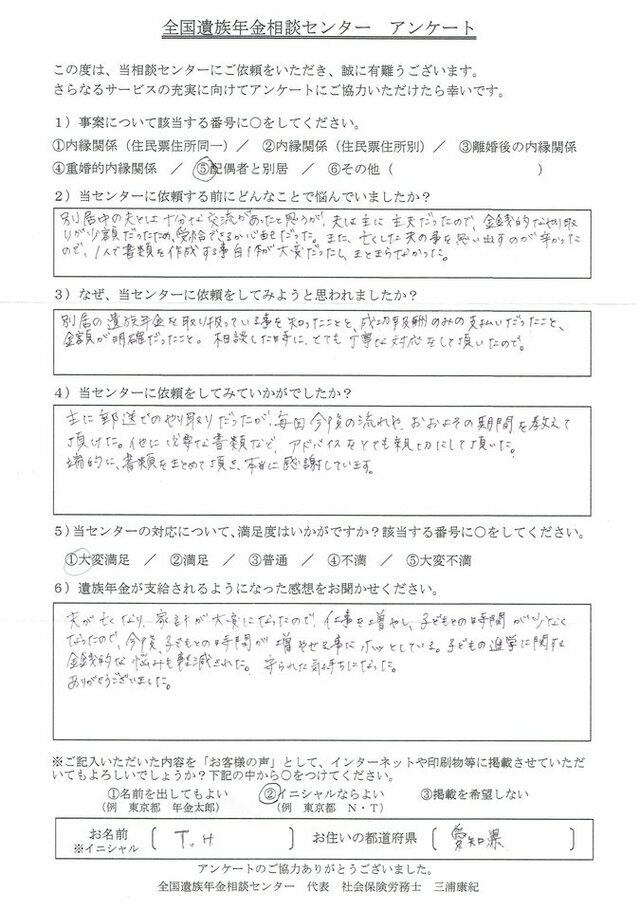 全国遺族年金相談センター　アンケート
この度は、当相談センターにご依頼をいただき、誠に有難うございます。
さらなるサービスの充実に向けてアンケートにご協力いただけたら幸いです。
1）事案について該当する番号に○をしてください。
①内縁関係（住民票住所同一）　／　②内縁関係（住民票住所別）／　③離婚後の内縁関係
④重婚的内縁関係　／　⑤配偶者と別居　／　⑥その他（　　　　　　　　　）
2）当センターに依頼する前にどんなことで悩んでいましたか？
別居中の夫とは十分な交流があったと思うが、夫は主に主夫だったので、金銭的なやり取
りが少額だったため、受給できるか心配だった。また、亡くした夫の事を思い出すのが辛かった
ので、1人で書類を作成する事自体が大変だったし、まとまらなかった。
3）なぜ、当センターに依頼をしてみようと思われましたか？
別居の遺族年金を取り扱っている事を知ったことと、成功報酬のみの支払いだったこと、
金額が明確だったこと。相談した時に、とても丁寧な対応をして頂いたので。
4）当センターに依頼をしてみていかがでしたか？
主に郵送でのやり取りだったが、毎回今後の流れや、おおよその期間を教えて
頂けた。他に必要な書類など、アドバイスをとても親切にして頂いた。
端的に、書類をまとめて頂き、本当に感謝しています。
5）当センターの対応について、満足度はいかがですか？該当する番号に○をしてください。
①大変満足　／　②満足　／　③普通　／　④不満　／　⑤大変不満
6）遺族年金が支給されるようになった感想をお聞かせください。
夫が亡くなり、家計が大変になったので、仕事を増やし、子どもとの時間が少なく
なったので、今後、子どもとの時間が増やせる事にホッとしている。子どもの進学に関する
金銭的な悩みも軽減された。守られた気持ちになった。
ありがとうございました。
※ご記入いただいた内容を「お客様の声」として、インターネットや印刷物等に掲載させていただ
いてもよろしいでしょうか？下記の中から○をつけてください。
①名前を出してもよい　②イニシャルならよい　③掲載を希望しない
（例　東京都　年金太郎）　（例　東京都　N・T）
お名前　〔　T.H　〕　お住いの都道府県　〔　愛知県　〕
※イニシャル
アンケートのご協力ありがとうございました。
全国遺族年金相談センター　代表　社会保険労務士　三浦康紀